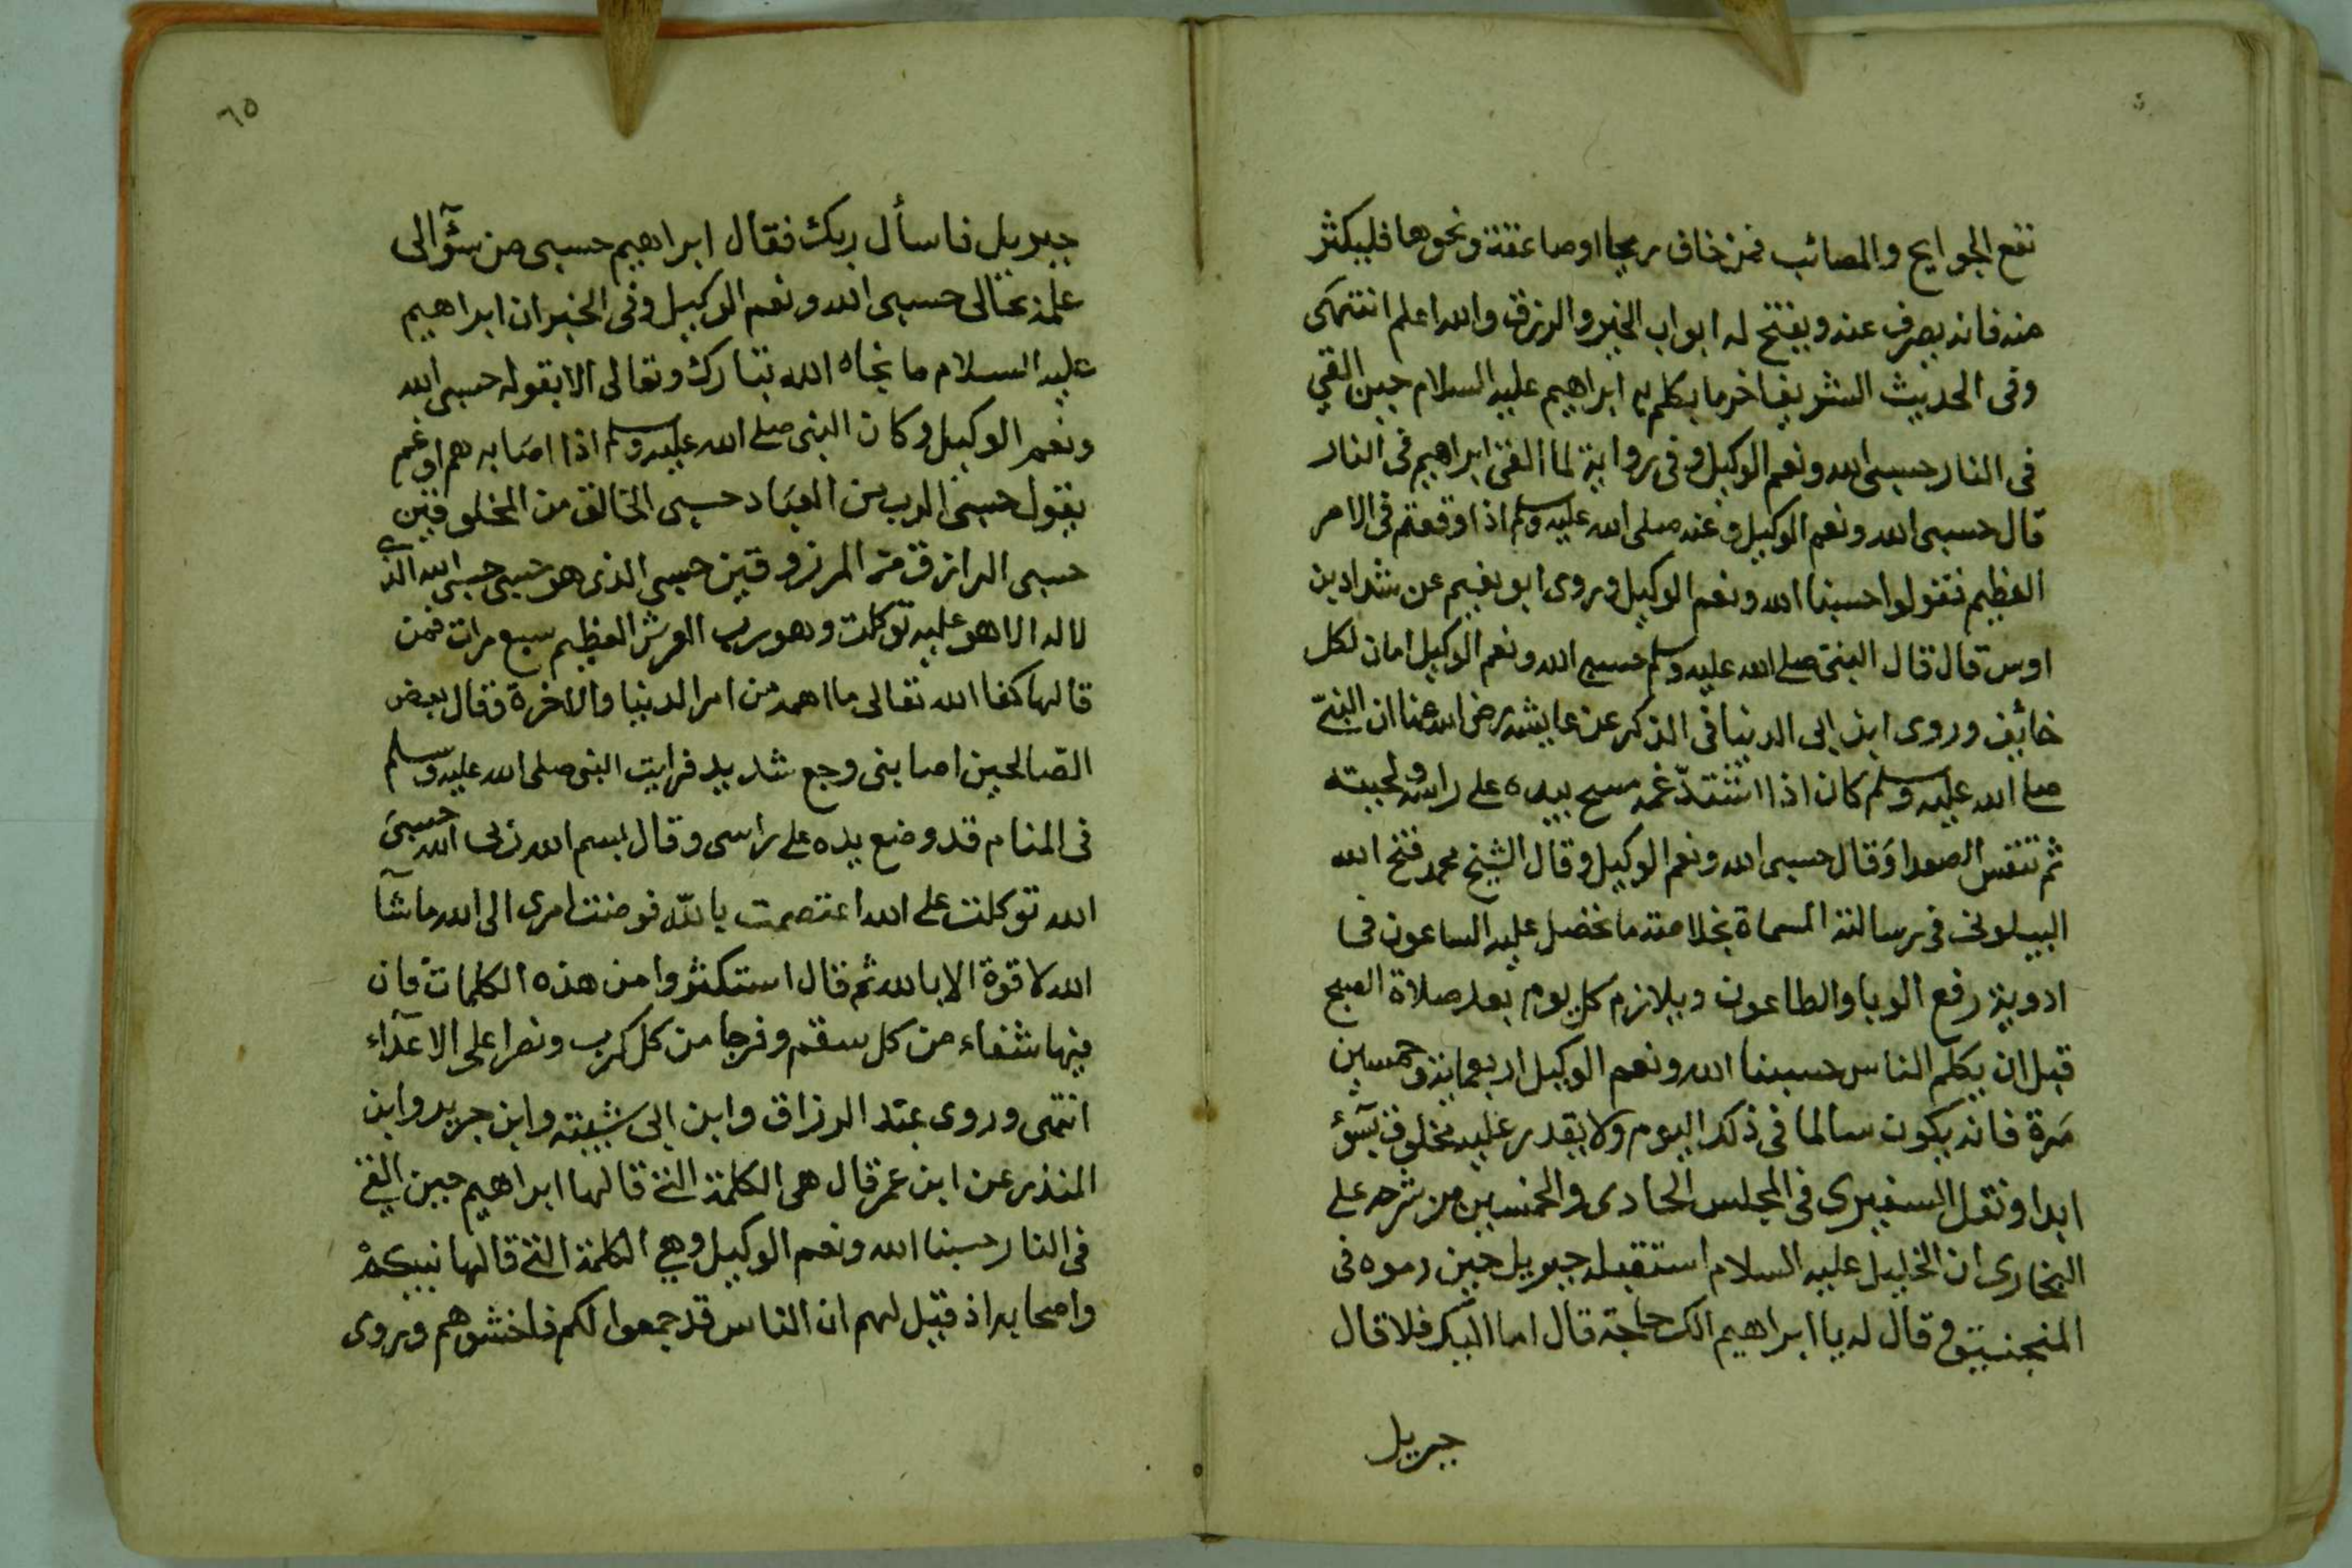 تقع الجوايح والمصائب فمن خاف ريحا او صاعقة ونحوها فليكثر
منه فانه يصرف عنه ويفتح له ابواب الخير والرزق والله اعلم انتهى
وفى الحديث الشريف اخر ما تكلم به ابراهيم عليه السلام حين القي
فى النار حسبى الله ونعم الوكيل وفى رواية لما القى ابراهيم فى النار
قال حسبى الله ونعم الوكيل وعنه صلى الله عليه وسلم اذا وقعتم فى الامر
العظيم فقولوا حسبنا الله ونعم الوكيل وروى ابو نعيم عن شداد بن
اوس قال قال النبى صلى الله عليه وسلم حسبي الله ونعم الوكيل امان لكل
خائف وروى ابن ابى الدنيا فى الذكر عن عايشه رضى الله عنها ان النبىّ
صلى الله عليه وسلم كان اذا اشتدّ غمه مسح بيده على راسه ولحيته
ثم تنفس الصعدا وقال حسبى الله ونعم الوكيل وقال الشيخ محمد فتح الله
البيلونى فى رسالته المسماة بخلاصة ما تحصل عليه الساعون فى
ادوية رفع الوبا والطاعون ويلازم كل يوم بعد صلاة الصبح
قبل ان يكلم الناس حسبنا الله ونعم الوكيل اربعماية وخمسين
مرة فانه يكون سالما فى ذلك اليوم ولا يقدر عليه مخلوق بسوٓء
ابدا ونقل السفيرى فى المجلس الحادى والخمسين من شرحه على
البخارى ان الخليل عليه السلام استقبله جبريل حين رموه فى
المنجنيق وقال له يا ابراهيم الك حاجة قال اما اليك فلا قال
جبريل
٦٥
جبريل فاسأل ربك فقال ابراهيم حسبى من سؤآلى
علمه تعالى حسبى الله ونعم الوكيل وفى الخبر ان ابراهيم
عليه السلام ما نجاه الله تبارك وتعالى الا بقوله حسبى الله
ونعم الوكيل وكان النبى صلى الله عليه وسلم اذا اصابه هم او غم
يقول حسبى الرب من العباد حسبى الخالق من المخلوقين
حسبى الرازق من المرزوقين حسبى الذى هو حسبى حسبى الله الذى
لا اله الا هو عليه توكلت وهو رب العرش العظيم سبع مرات فمن
قالها كفا الله تعالى ما اهمه من امر الدنيا والاخرة وقال بعض
الصالحين اصابنى وجع شديد فرايت النبى صلى الله عليه وسلم
فى المنام قد وضع يده على راسى وقال بسم الله ربى الله حسبى
الله توكلت على الله اعتصمت بالله فوضت امرى الى الله ما شآا
الله لا قوة الا بالله ثم قال استكثروا من هذه الكلمات فان
فيها شفاء من كل سقم وفرجا من كل كرب ونصرا على الاعدآء
انتهى وروى عبد الرزاق وابن ابى شيبته وابن جرير وابن
المنذر عن ابن عمر قال هى الكلمة التى قالها ابراهيم حين القي
فى النار حسبنا الله ونعم الوكيل وهي الكلمة التى قالها نبيكم
واصحابه اذ قيل لهم ان الناس قد جمعوا لكم فاخشوهم وروى